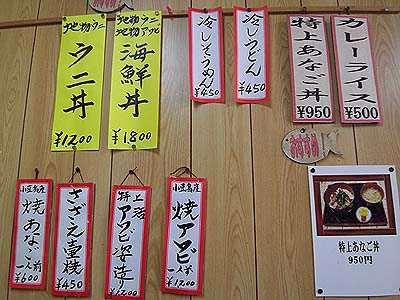 地物ウニ
ウニ丼
¥1200
地物ウニ
地物アワビ
海鮮丼
¥1800
冷しそうめん
¥450
冷しうどん
¥450
特上あなご丼
¥950
カレーライス
¥500
小豆島産
焼あなご
一人前
¥600
さざえ壷焼
¥450
特上
アワビ姿造り
¥1200
小豆島産
焼アワビ
一人前
¥1200
特上あなご丼
950円